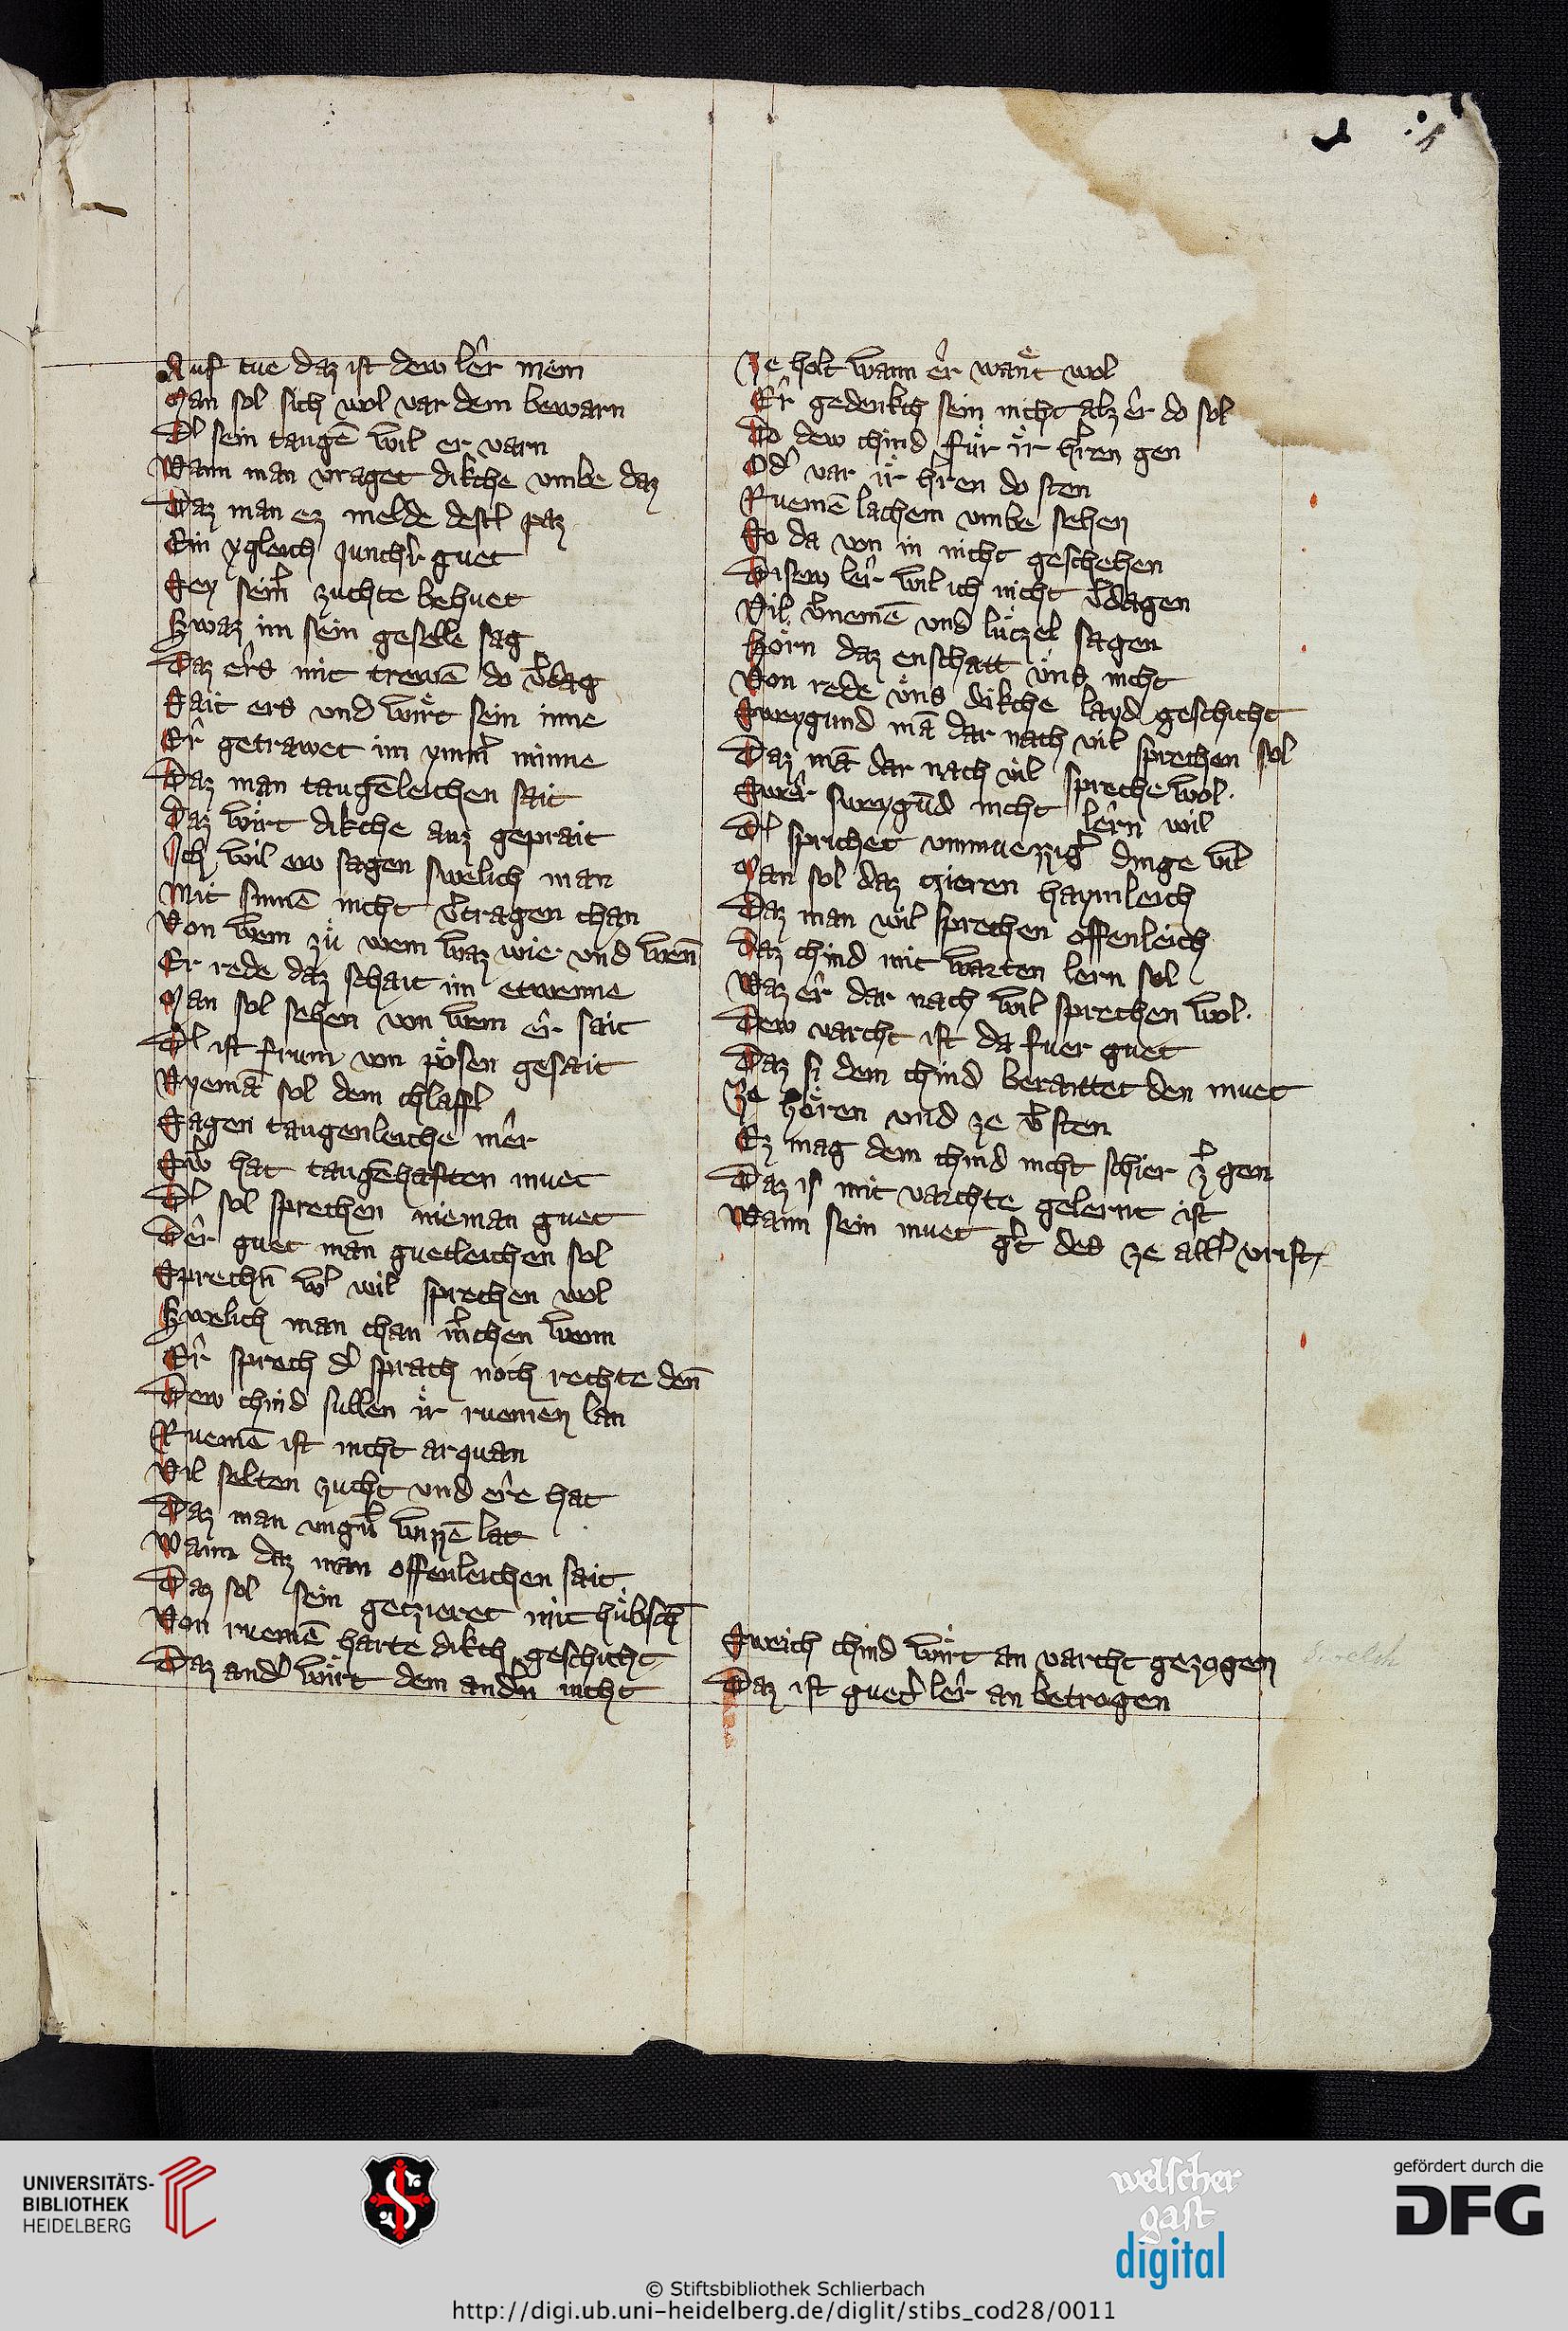 Auf tue daz ist dew lêr mein
Man sol sich wol var dem bewarn
Der sein taugē wil er varn
Wann man vraget dikche vmbe daz
Daz man ez melde dest paz
Ein ygleich junchr̄ guet
Sey sein̄ zuchte behuet
Swaz im sein geselle sag
Daz êrs mit trewē do v̄dag
Sait ers vnd wirt sein inne
Êr getrawet im ym̄ minne
Daz man taugēleichen sait
Daz wirt dikche auz geprait
Ich wil ew sagen swelich man
Mit sinnē nicht v̄tragen chan
Von wem zů wem waz wie vnd wen̄
Er rede daz schait im etwenne
Man sol sehen von wem êr sait
Der ist frum von pösen gesait
Nyemā sol dem chlaffer
Sagen taugenleiche mêr
Sw̄ hat taugēhaften muet
Der sol sprechen nieman guet
Dêr guet man guetleichen sol
Sprechn̄ wer wil sprechen wol
Swelich man chan m̄chen wenn
Êr sprech der sprach noch rechte den̄
Dew chind sullen ir ruemen lan
Ruemē ist nicht arquan
Vil selten zucht vnd êre hat
Daz man vngn̄ wizzē lat
Wann daz man offenleichen sait
Daz sol sein getzieret mit hübsch̄
Von ruemē harte dikch geschicht
Daz ander wirt dem andern̄ nicht
Ze holt wann êr wānt wol
Êr gedenkch sein nicht alz êr do sol
So dew chind für ir hr̄en gen
Oder var ir hr̄en do sten
Ruemē lachem vmbe sehen
So da von in nicht geschehen
Disew lêr wil ich nicht v̄dagen
Vil v̄nemē vnd lützel sagen
Hörn daz enschatt vns nicht
Von rede vns dikche layd geschicht
Sweygund mā dar nach vil sprechen sol
Daz mā dar nach vil spreche wol.
Swêr sweygūd nicht lêrn wil
Der sprichet vnmuezziger dinge vil
Man sol daz tzieren haymleich
Daz man wil sprechen offenleich
Daz chind mit warten lern sol
Waz êr dar nach wil sprechen wol.
Dew varcht ist da fuer guet
Daz si dem chind beraittet den muet
Ze hören vnd ze v̄sten
Ez mag dem chind nicht schier zer gen
Daz is mit varchte gelernt ist
Wann sein muet gert des ze aller vrist
Sweich chind wirt an varcht gezogen
Swelch
Daz ist gueter lêr an betrogen
UNIVERSITÄTS-
BIBLIOTHEK
HEIDELBERG
welscher
gast
digital
gefördert durch die
DFG
© Stiftsbibliothek Schlierbach
http://digi.ub.uni-heidelberg.de/diglit/stibs_cod28/0011